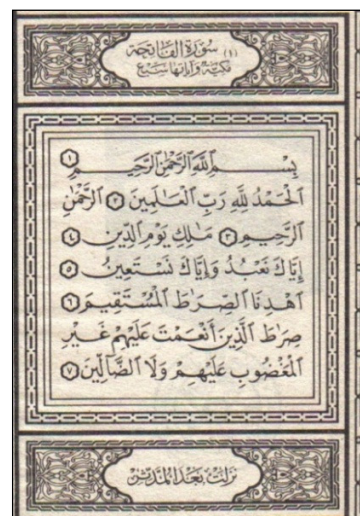 (١) سُورَةُ الفَاتِحَةِ
مَكِيَّة وَآيَاتُهَا سَبْعٌ
بِسْمِ ٱللَّهِ ٱلرَّحْمَٰنِ ٱلرَّحِيمِ ١
ٱلْحَمْدُ لِلَّهِ رَبِّ ٱلْعَٰلَمِينَ ٢ ٱلرَّحْمَٰنِ
ٱلرَّحِيمِ ٣ مَٰلِكِ يَوْمِ ٱلدِّينِ ٤
إِيَّاكَ نَعْبُدُ وَإِيَّاكَ نَسْتَعِينُ ٥
ٱهْدِنَا ٱلصِّرَٰطَ ٱلْمُسْتَقِيمَ ٦
صِرَٰطَ ٱلَّذِينَ أَنْعَمْتَ عَلَيْهِمْ غَيْرِ
ٱلْمَغْضُوبِ عَلَيْهِمْ وَلَا ٱلضَّآلِّينَ ٧
نزلت بعد المدثر